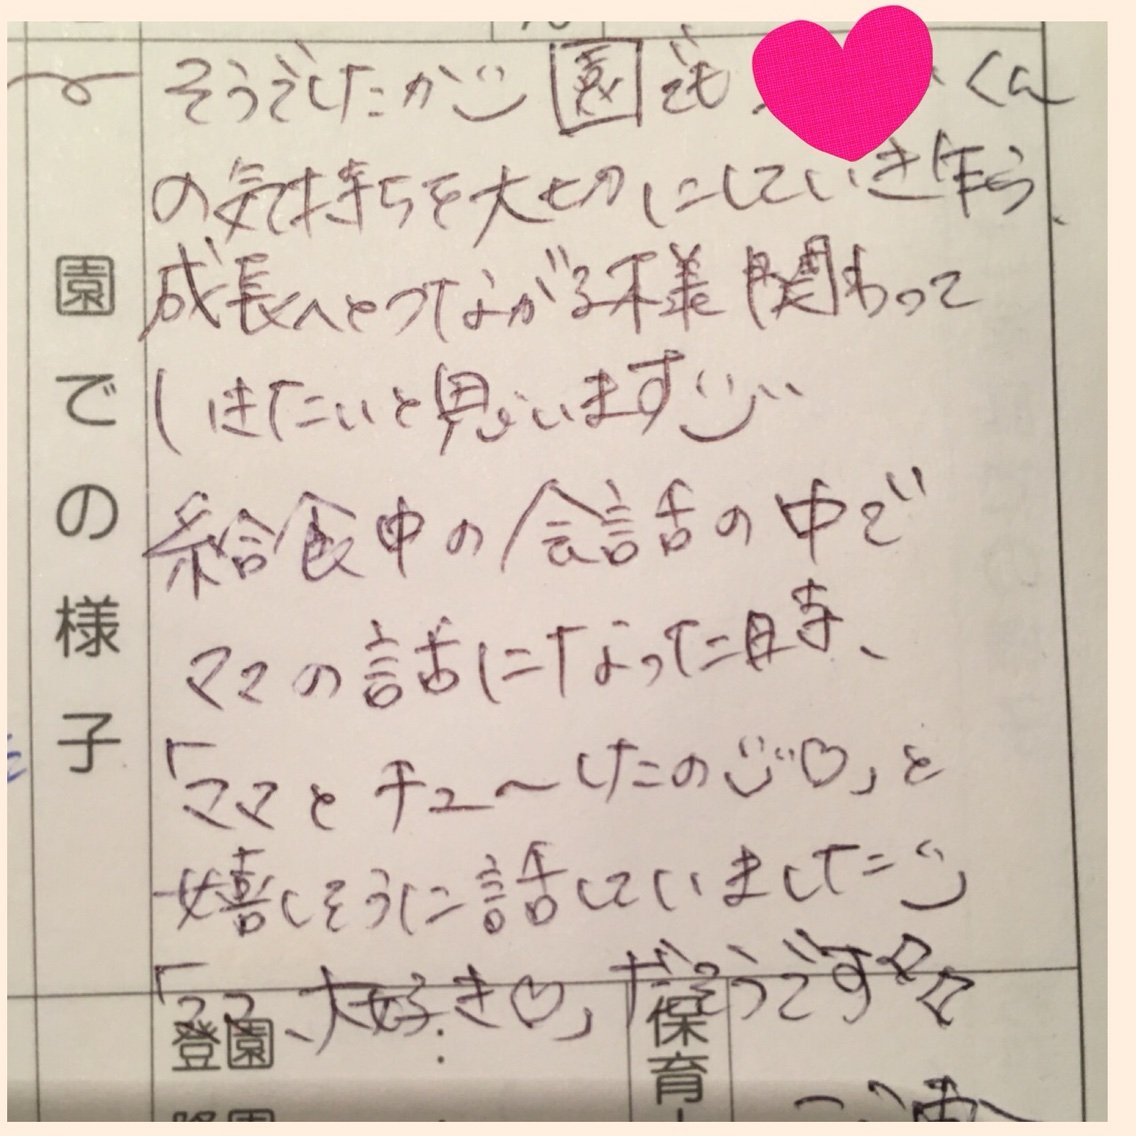 園での様子
そうでしたか 園でも くん
の気持ちを大切にしていき乍ら、
成長へとつながる様関わって
いきたいと思います
給食中の会話の中で
ママの話になった時、
「ママとチュ〜したの♡」と
嬉しそうに話していました
「ママ、大好き♡」だそうです☆☆
登園
保育